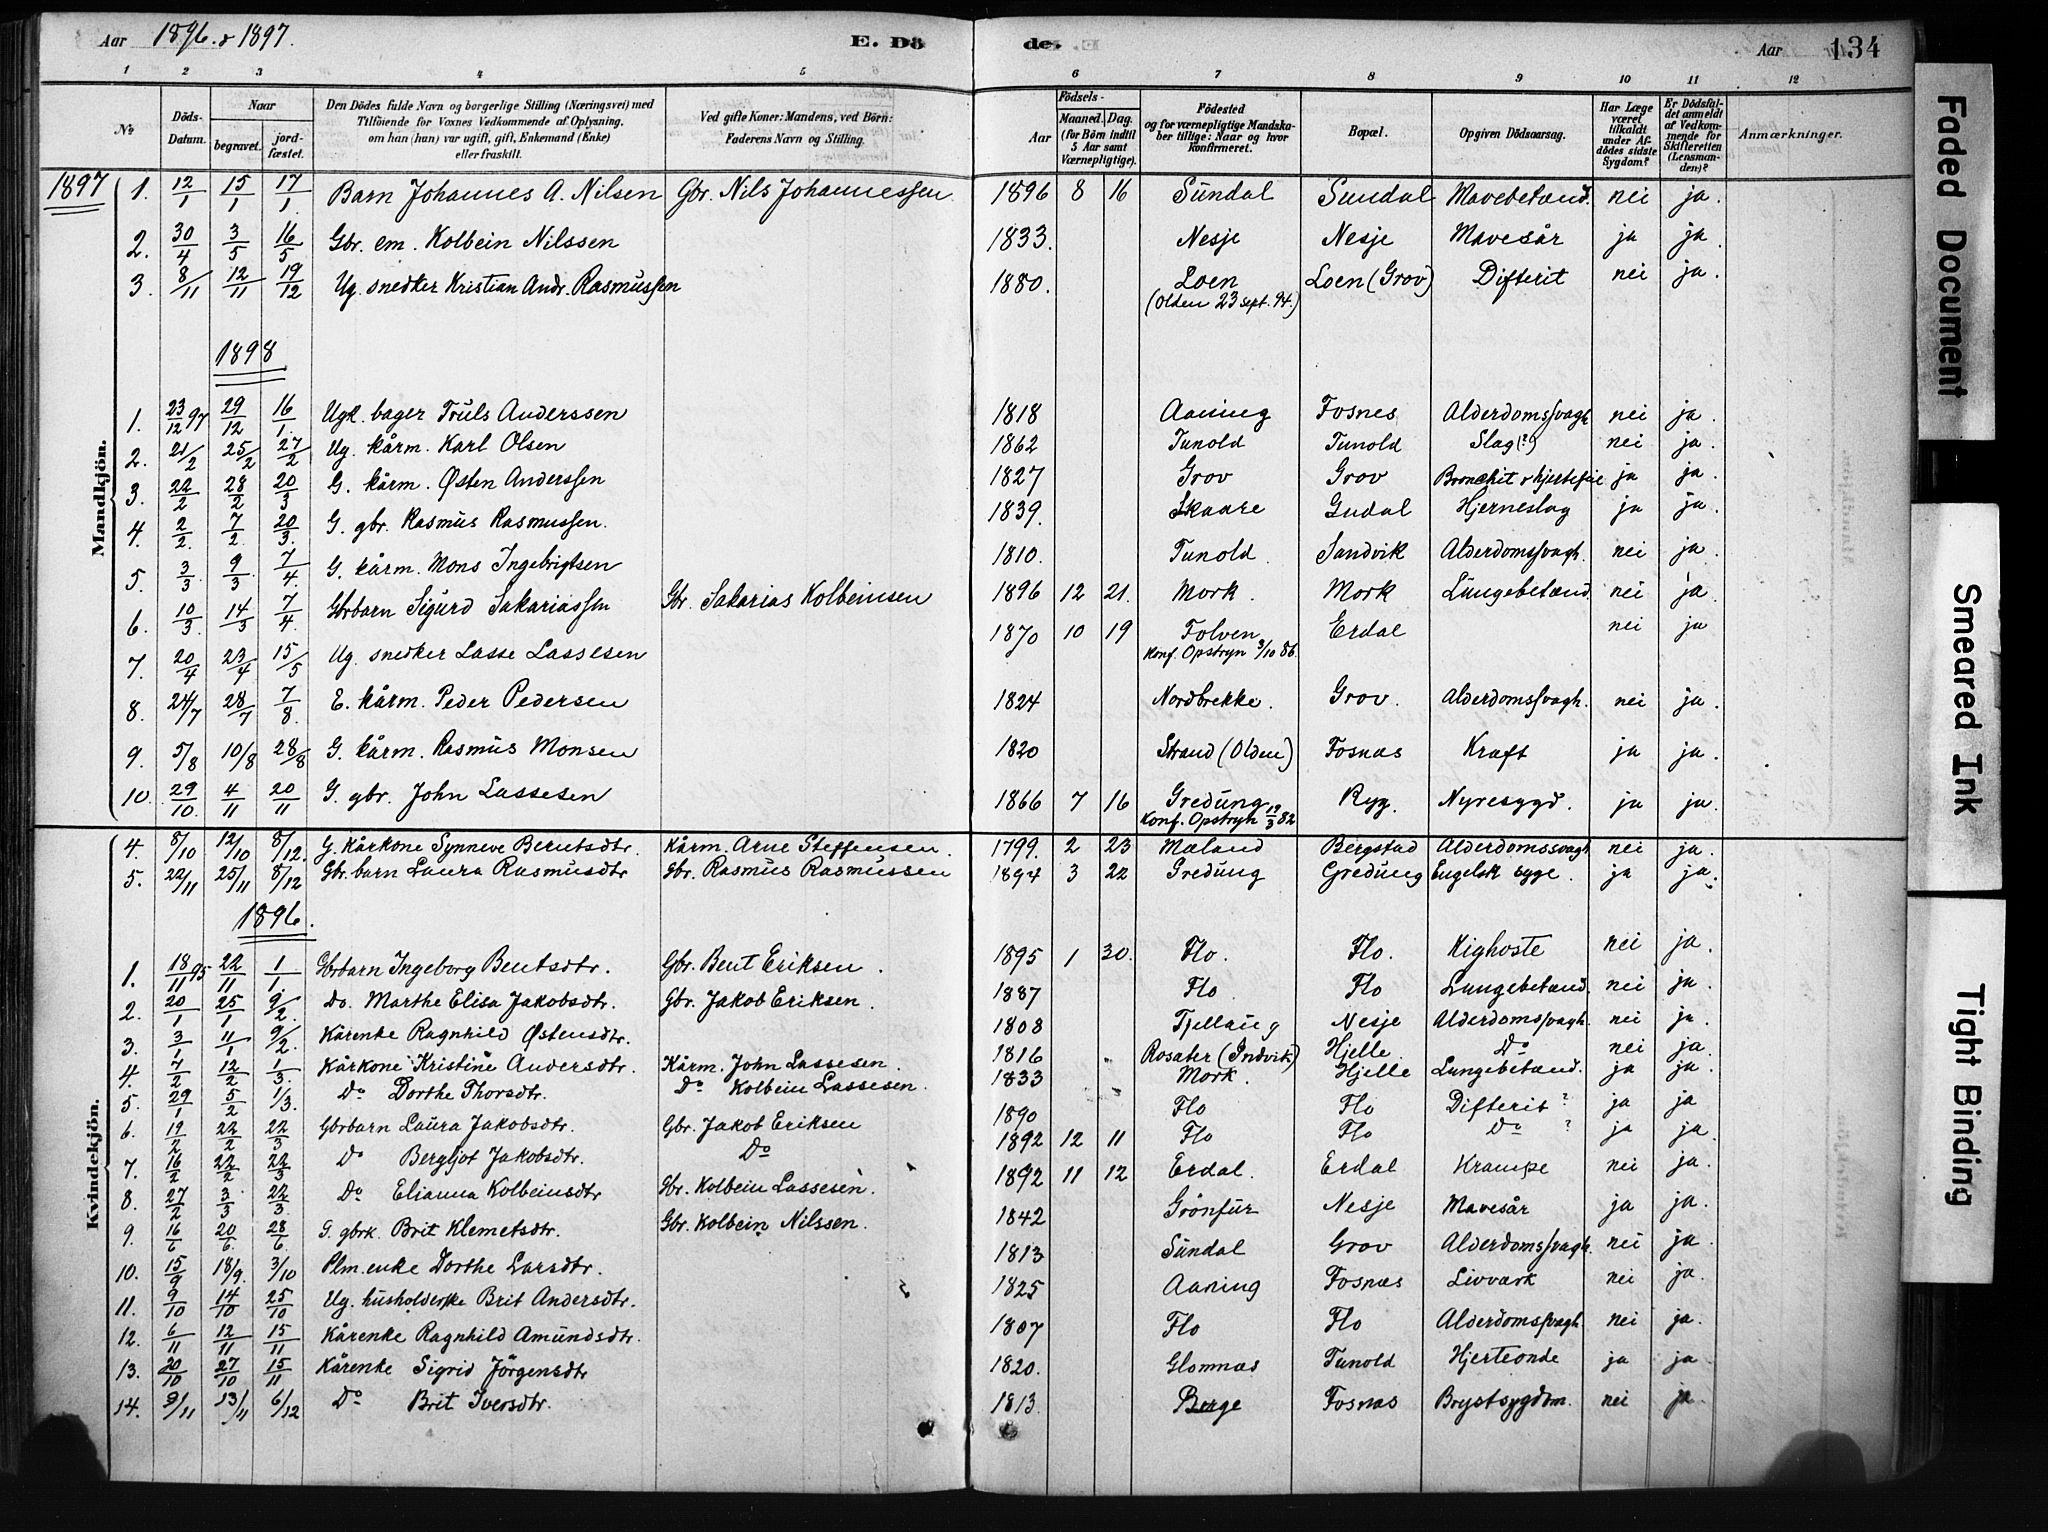 Aar 1896 & 1897. E. Döde. Aar 134
1 2 3 4 5 6 7 8 9 10 11 12
No
Döds-Datum.
Naar
begravet.
jordfæstet.
Den Dödes fulde Navn og borgerlige Stilling (Næringsvei) med
Tilföiende for Voxnes Vedkommende af Oplysning,
om han (hun) var ugift, gift, Enkemand (Enke)
eller fraskilt.
Ved gifte Koner: Mandens, ved Börn:
Faderens Navn og Stilling.
Födsels-
Aar
Maaned. Dag.
(for Börn indtil
5 Aar samt
Værnepligtige).
Födested
og for værnepligtige Mandska-
ber tillige: Naar og hvor
Konfirmeret.
Bopæl.
Opgiven Dödsaarsag.
Har Læge
været
tilkaldt
under Af-
dödes sidste
Sygdom?
Er Dödsfal-
det anmeldt
af Vedkom-
mende for
Skifteretten
(Lensman-
den)?
Anmærkninger.
Mandkjön.
1897
1. 12/1 15/1 17/1 Barn Johannes A. Nilsen Gbr. Nils Johannessen 1896 8 16 Sundal Sundal Mavebetænd. nei ja.
2. 30/4 3/5 16/5 Gbr. em. Kolbein Nilssen 1833. Nesje Nesje Mavesår ja ja.
3. 8/11 12/11 19/12 Ug. snedker Kristian Andr. Rasmussen 1880. Loen Loen (Grov) Difterit nei ja.
(Olden 23 sept. 94.)
1898
1. 23/12 97 29/12 16/1. Ugk. bager Truls Anderssen 1818 Aaning Fosnes Alderdomssvagh nei ja.
2. 21/2 25/2 27/2 Ug. kårm. Karl Olsen 1862 Tunold Tunold Slag (?) nei ja.
3. 22/2 28/2 20/3 G. kårm. Østen Anderssen 1827 Grov Grov Bronchit & hjertefeil ja ja.
4. 2/2. 7/2. 20/3. G. gbr. Rasmus Rasmussen. 1839. Skaare Gudal Hjerneslag ja ja.
5. 3/3. 9/3. 7/4. G. kårm. Mons Ingebrigtsen 1810. Tunold Sandvik Alderdomssvagh. nei ja.
6. 10/3. 14/3 7/4. Gbrbarn Sigurd Sakariassen Gbr. Sakarias Kolbeinsen 1896 12 21. Mork. Mork Lungebetænd. nei ja.
7. 20/4 23/4 15/5 Ug. snedker Lasse Lassesen 1870 10 19 Folven Erdal nei ja
Konf. Opstryn 3/10 86.
8. 24/7 28/7 7/8 E. kårm. Peder Pedersen 1824 Nordbrekke. Grov. Alderdomssvagh. nei ja.
9. 5/8 10/8 28/8 G. kårm. Rasmus Monsen 1820 Strand (Olden) Fosnæs Kræft ja ja.
10. 29/10. 4/11 20/11 G. gbr. John Lassesen 1866 7 16 Gredung Ryg. Nyresygd. ja ja.
Konf. Opstryn 12/3 82
Kvindekjön.
4. 8/10 12/10 8/12. G. Kårkone Synneve Berntsdtr. Kårm. Arne Steffensen. 1799. 2 23 Mæland Bergstad Alderdomssvagh nei ja.
5. 22/11 25/11 8/12 Gbr. barn Laura Rasmusdtr Gbr. Rasmus Rasmussen 1894 3 22 Gredung Gredung Engelsk syge. ja ja.
1896.
1. 18/11 95 22/11 1/1 Gbrbarn Ingeborg Bentsdtr. Gbr. Bent Eriksen. 1895 1 30. Flo. Flo. Kighoste nei ja.
2. 20/1 25/1 9/2. Do. Marthe Elisa Jakobsdtr. Gbr. Jakob Eriksen. 1887 Flo Flo Lungebetænd. nei ja.
3. 3/1 11/1 9/2. Kårenke Ragnhild Østensdtr. 1808 Tjellaug Nesje Alderdomssvagh. nei ja.
4. 4/2 12/2 1/3. Kårkone Kristine Andersdtr. Kårm. John Lassesen. 1816 Rosater (Indvik) Hjelle Do nei ja.
5. 29/1 5/2 1/3. Do Dorthe Thorsdtr. Do Kolbein Lassesen. 1833 Mork. Hjelle Lungebetænd. ja ja.
6. 19/2 22/2 22/3 Gbrbarn Laura Jakobsdtr. Gbr. Jakob Eriksen 1890 Flo Flo Difterit ? ja ja
7. 16/2 22/2 22/3 Do Bergljot Jakobsdtr. Do 1892 12 11 Flo Flo Do ? ja ja.
8. 27/2 3/3 22/3. Do Elianna Kolbeinsdtr Gbr. Kolbein Lassesen. 1892 11 12 Erdal. Erdal Krampe nei ja.
9. 16/6 20/6. 28/6. G. gbrk. Brit Klemetsdtr. Gbr. Kolbein Nilssen. 1842 Grönfur Nesje Mavesår ja ja.
10. 15/9 18/9. 3/10 Plm.enke Dorthe Larsdtr. 1813 Sundal Grov Alderdomssvagh. nei ja.
11. 9/10 14/10 25/10 Ug. husholderske Brit Andersdtr. 1825 Aaning Fosnæs Livværk nei ja.
12. 6/11 12/11 15/11 Kårenke Ragnhild Amundsdtr. 1807 Flo Flo Alderdomssvagh. nei ja.
13. 20/10 27/10 15/11 Kårenke Sigrid Jörgensdtr 1820. Glomnæs Tunold Hjerteonde ja ja
14. 9/11 13/11 6/12 Do Brit Iversdtr. 1813. Berge Fosnæs Brystsygdom. nei ja.
Faded Document
Smeared Ink
Tight Binding